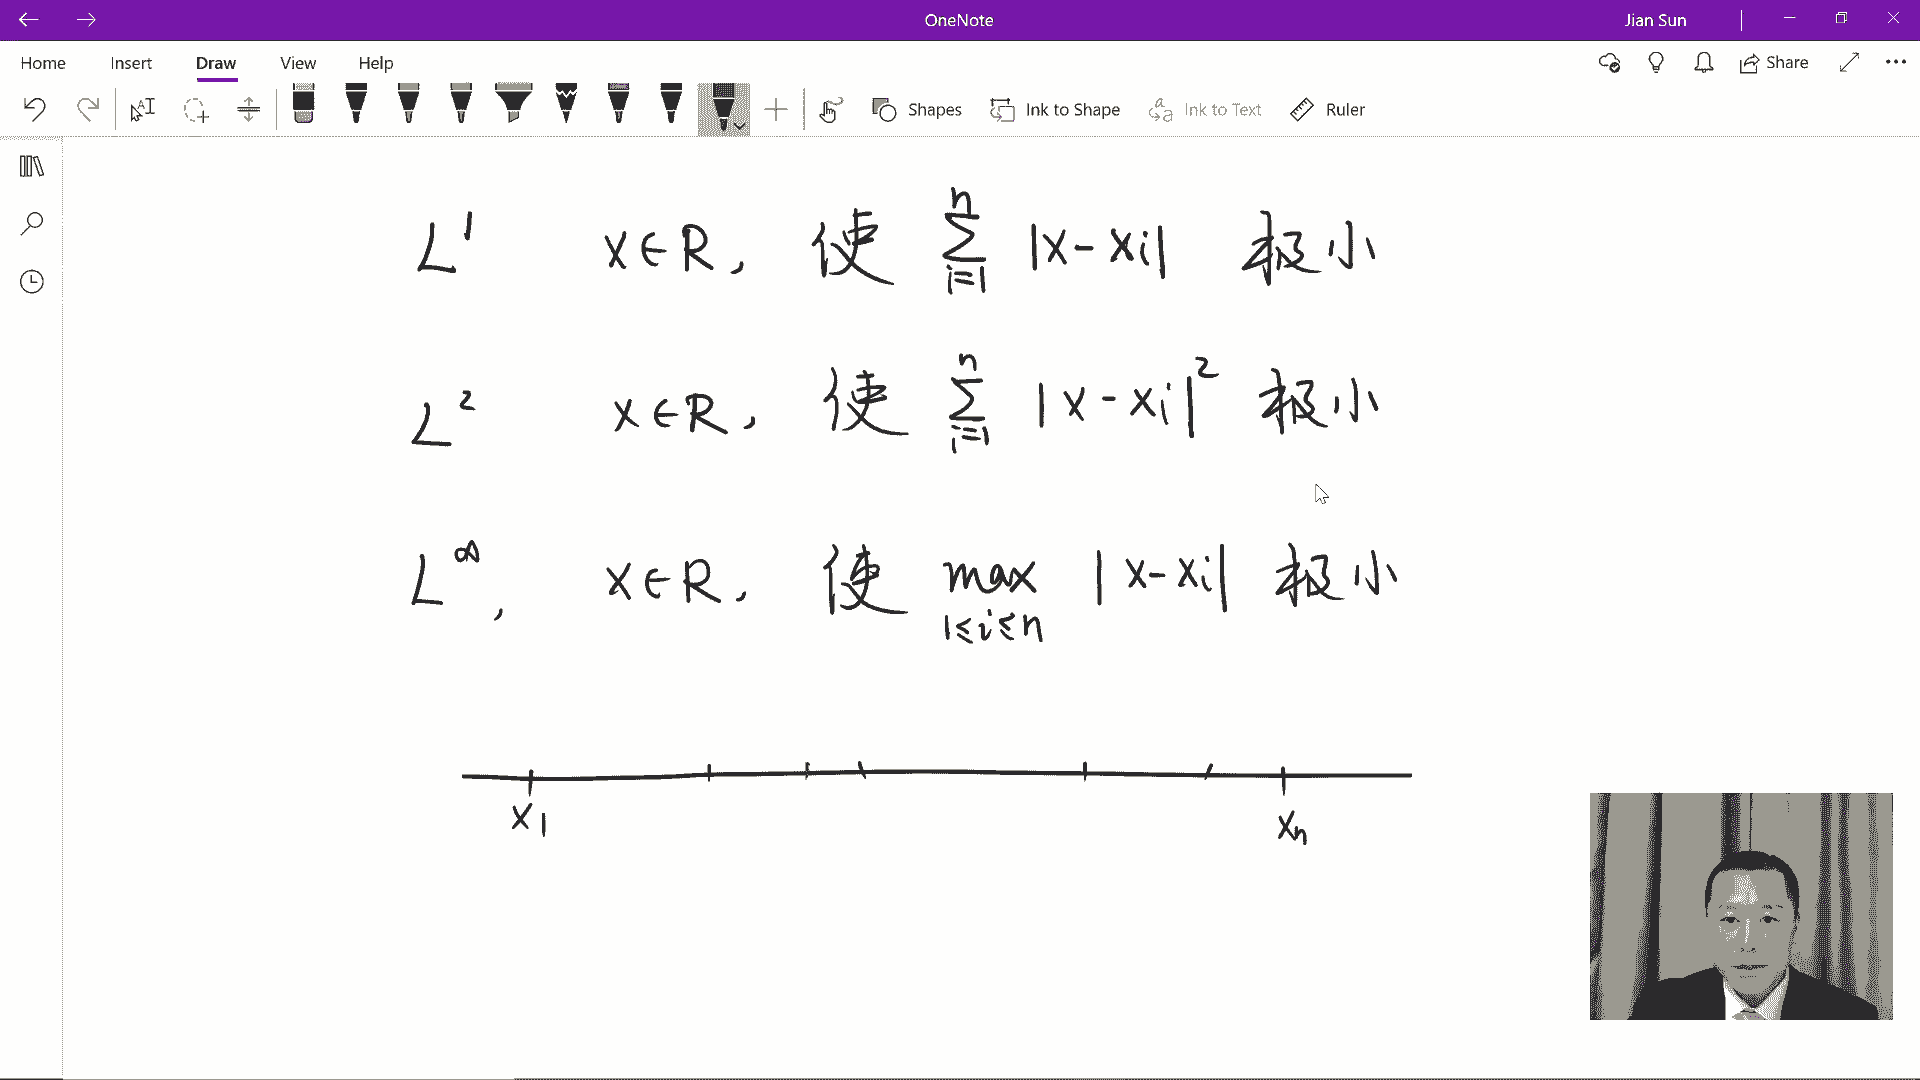 OneNote
Jian Sun
Home Insert Draw View Help
Share
Shapes Ink to Shape Ink to Text Ruler
L¹ x∈R, 使 ∑ⁿᵢ₌₁ |x-xi| 极小
L² x∈R, 使 ∑ⁿᵢ₌₁ |x-xi|² 极小
L^∞, x∈R, 使 max 1≤i≤n |x-xi| 极小
x₁ xₙ